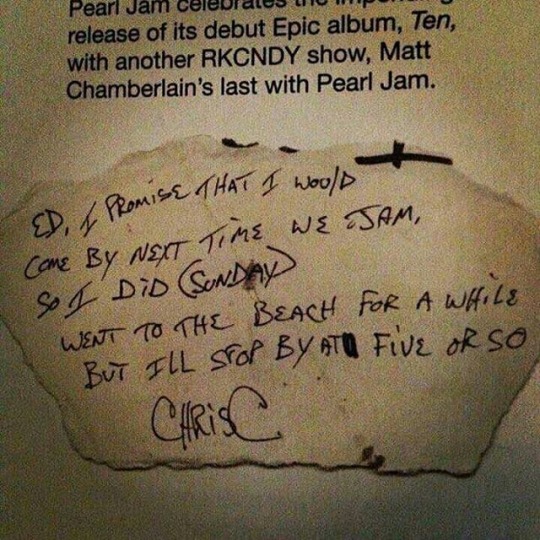 Pearl Jam celebrates the impending
release of its debut Epic album, Ten,
with another RKCNDY show, Matt
Chamberlain's last with Pearl Jam.
ED, I PROMISE THAT I WOULD
COME BY NEXT TIME WE JAM,
SO I DID (SUNDAY)
WENT TO THE BEACH FOR A WHILE
BUT ILL STOP BY AT FIVE OR SO
CHRISC